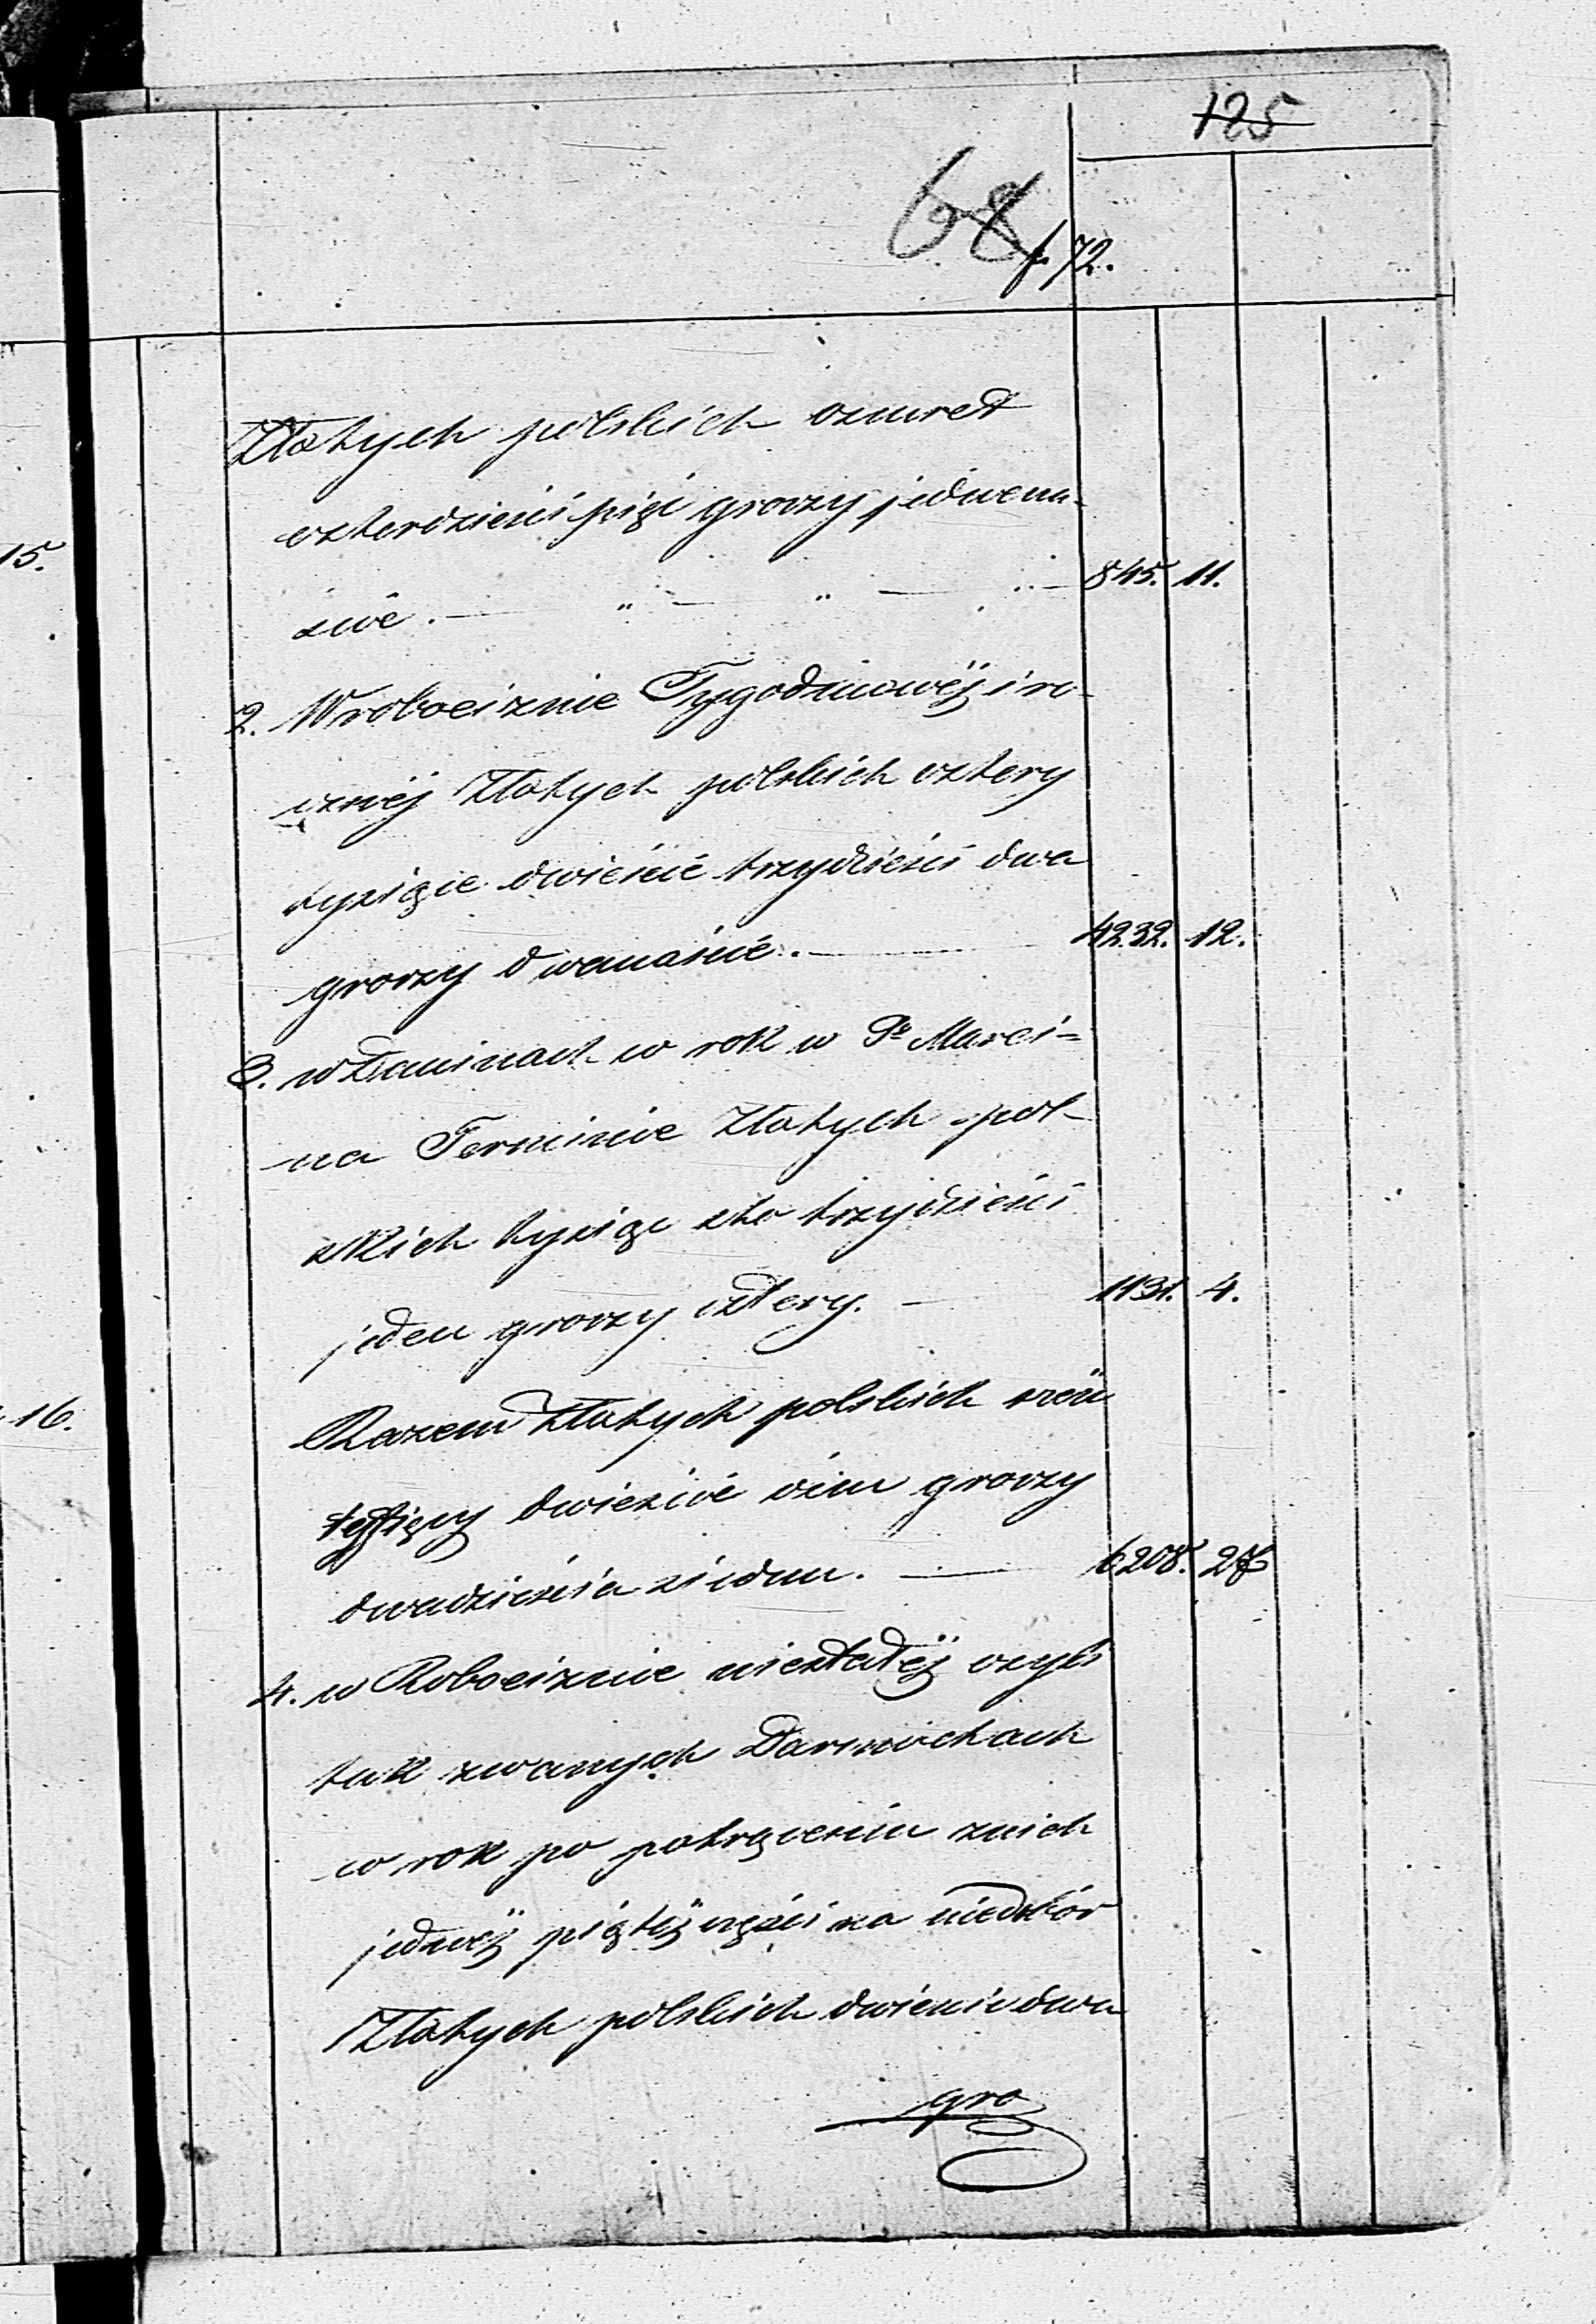 125
68
f. 72.
Złotych polskich osmset
czterdzieści pięć groszy jedwena-
15.
ście . — " — " — " — 845. 11.
2. W robociznie Tygodniowéj i ro-
cznéj Złotych polskich cztery
tysiące dwieście trzydzieści dwa
groszy dwanaście. — 4232. 12.
3. w Daninach w rok w Sr Marci=
na Terminie Złotych pol-
skich tysiąc sto trzydzieści
jeden groszy cztery. — 1131. 4.
16.
Razem Złotych polskich sześć
tysięcy dwieście ośm groszy
dwadzieścia siedm. — 6208. 27
4. w Robociznie niestałéj czyli
tak zwanych Darmochach
w rok po potrąceniu znich
jednéj piątéj części na niedobór
Złotych polskich dwieście dwa
gro